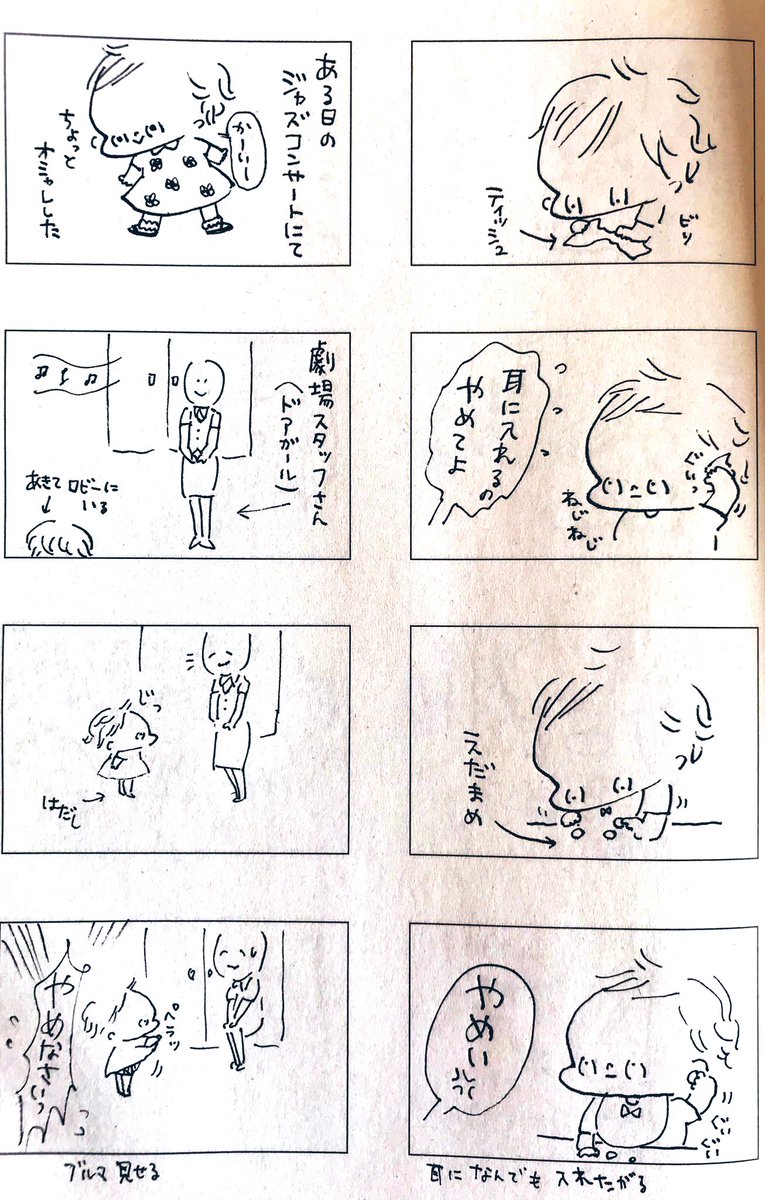 ティッシュ
ビリ
耳に入れるの
やめてよ
ぐいっ
ねじ
ねじ
えだまめ
やめい
ぐい
ぐい
耳になんでも入れたがる
ある日の
ジャズコンサートにて
かーいー
ちょっと
オシャレした
劇場スタッフさん
(ドアガール)
あきてロビーに
いる
じっ
はだし
ペラッ
やめなさいっ
ブルマ見せる